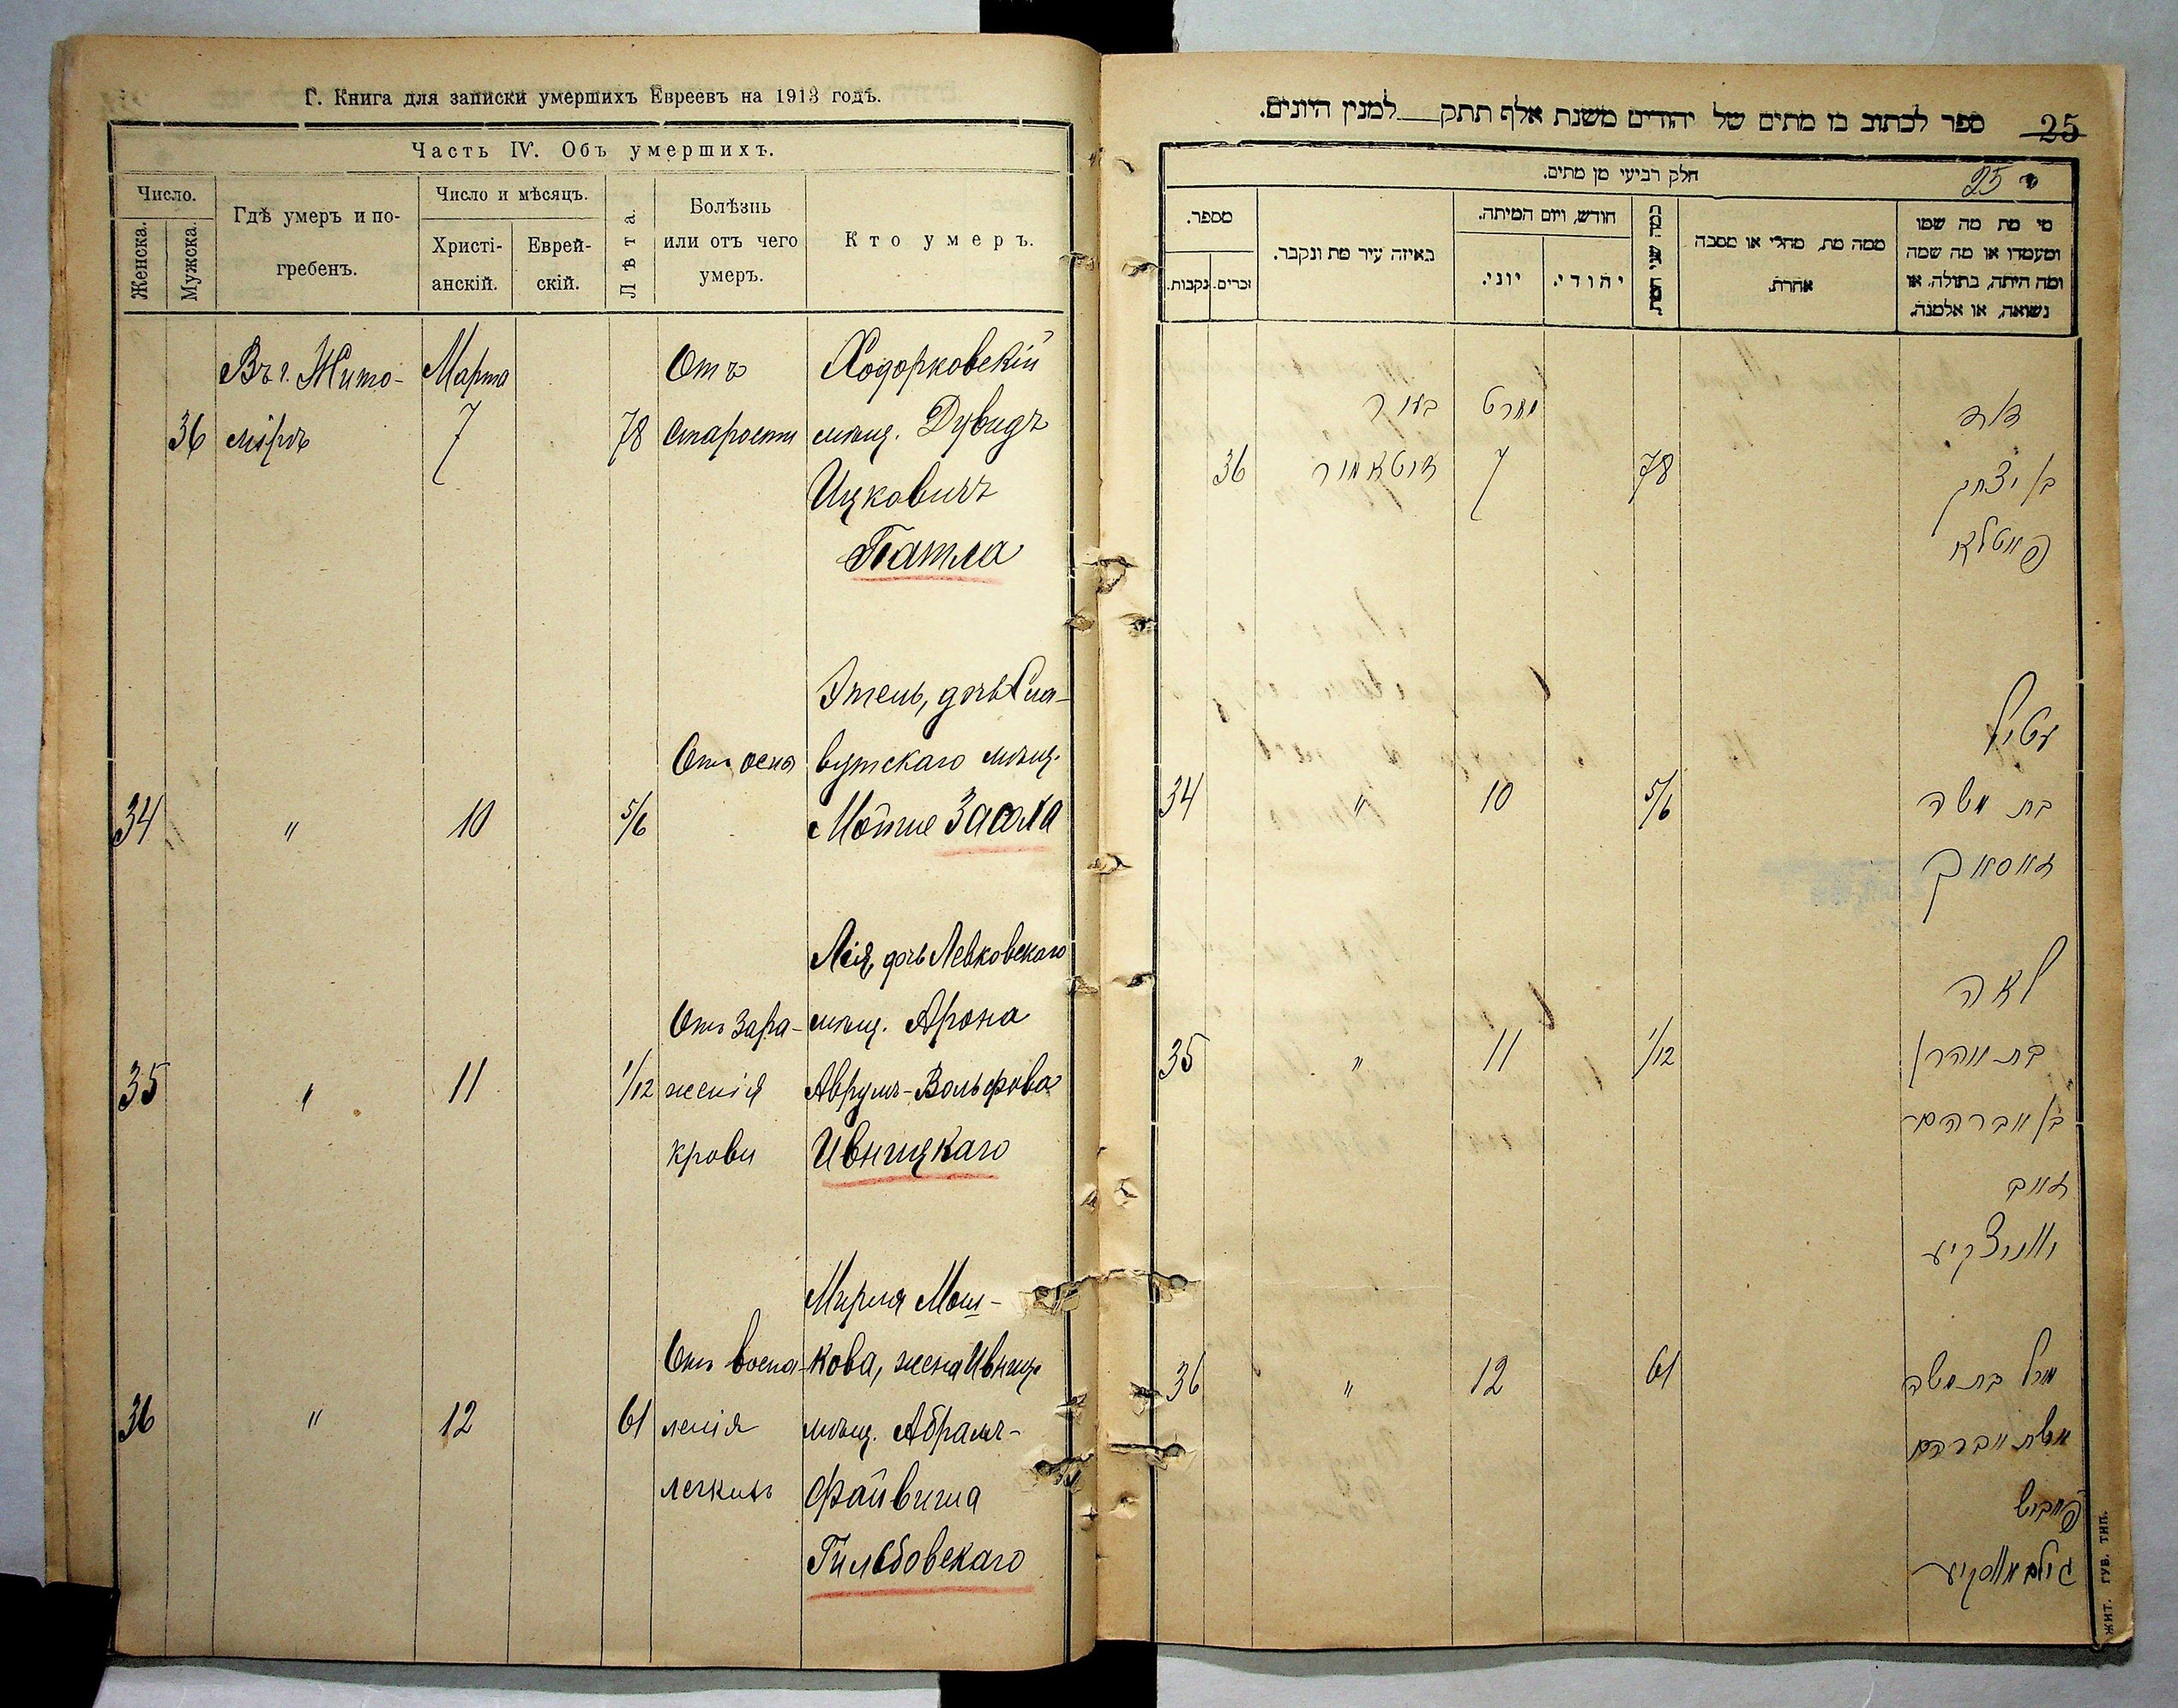 Г. Книга для записки умершихъ Евреевъ на 1913 годъ.
Часть IV. Объ умершихъ.
Число.
Женска.
Мужска.
Гдѣ умеръ и по-
гребенъ.
Число и мѣсяцъ.
Христі-
анскій.
Еврей-
скій.
Лѣта.
Болѣзнь
или отъ чего
умеръ.
Кто умеръ.
Въ г. Жито- Марта Отъ Ходорковскій
36 мірѣ 7 78 старости мѣщ. Дувидъ
Ицковичъ
Патла
Этель, дочь Сла-
Отъ оспы вутскаго мѣщ.
34 " 10 5/6 Мотие Засяка
Лея, дочь Левковскаго
Отъ зара- мѣщ. Арона
35 " 11 1/12 женія Аврумъ-Вольфова
крови Ивницкаго
Мирля Мош-
Отъ воспа- кова, жена Ивниц.
36 " 12 61 ленія мѣщ. Абрамъ-
легкихъ Файвиша
Гильбовскаго
ספר לכתוב בו מתים של יהודים משנת אלף תתק למנין היונים.
25
חלק רביעי מן מתים.
25
מספר.
נקבות.
זכרים.
באיזה עיר מת ונקבר.
חודש, ויום המיתה.
יוני.
יהודי.
כמה שני המת.
ממה מת, מחלי או מסבה
אחרת.
מי מת מה שמו
ומעמדו או מה שמה
ומה היתה, בתולה, או
נשואה, או אלמנה.
בעיר מארט דוד
36 זיטאמיר 7 78 בן יצחק
פאטלא
עטיל
34 " 10 5/6 בת משה
זאסאק
לאה
35 " 11 1/12 בת אהרן
בן אברהם
זאב
36 " 12 61 מרל בת משה
אשת אברהם
פייביש
ЖИТ. ГУБ. ТИП.